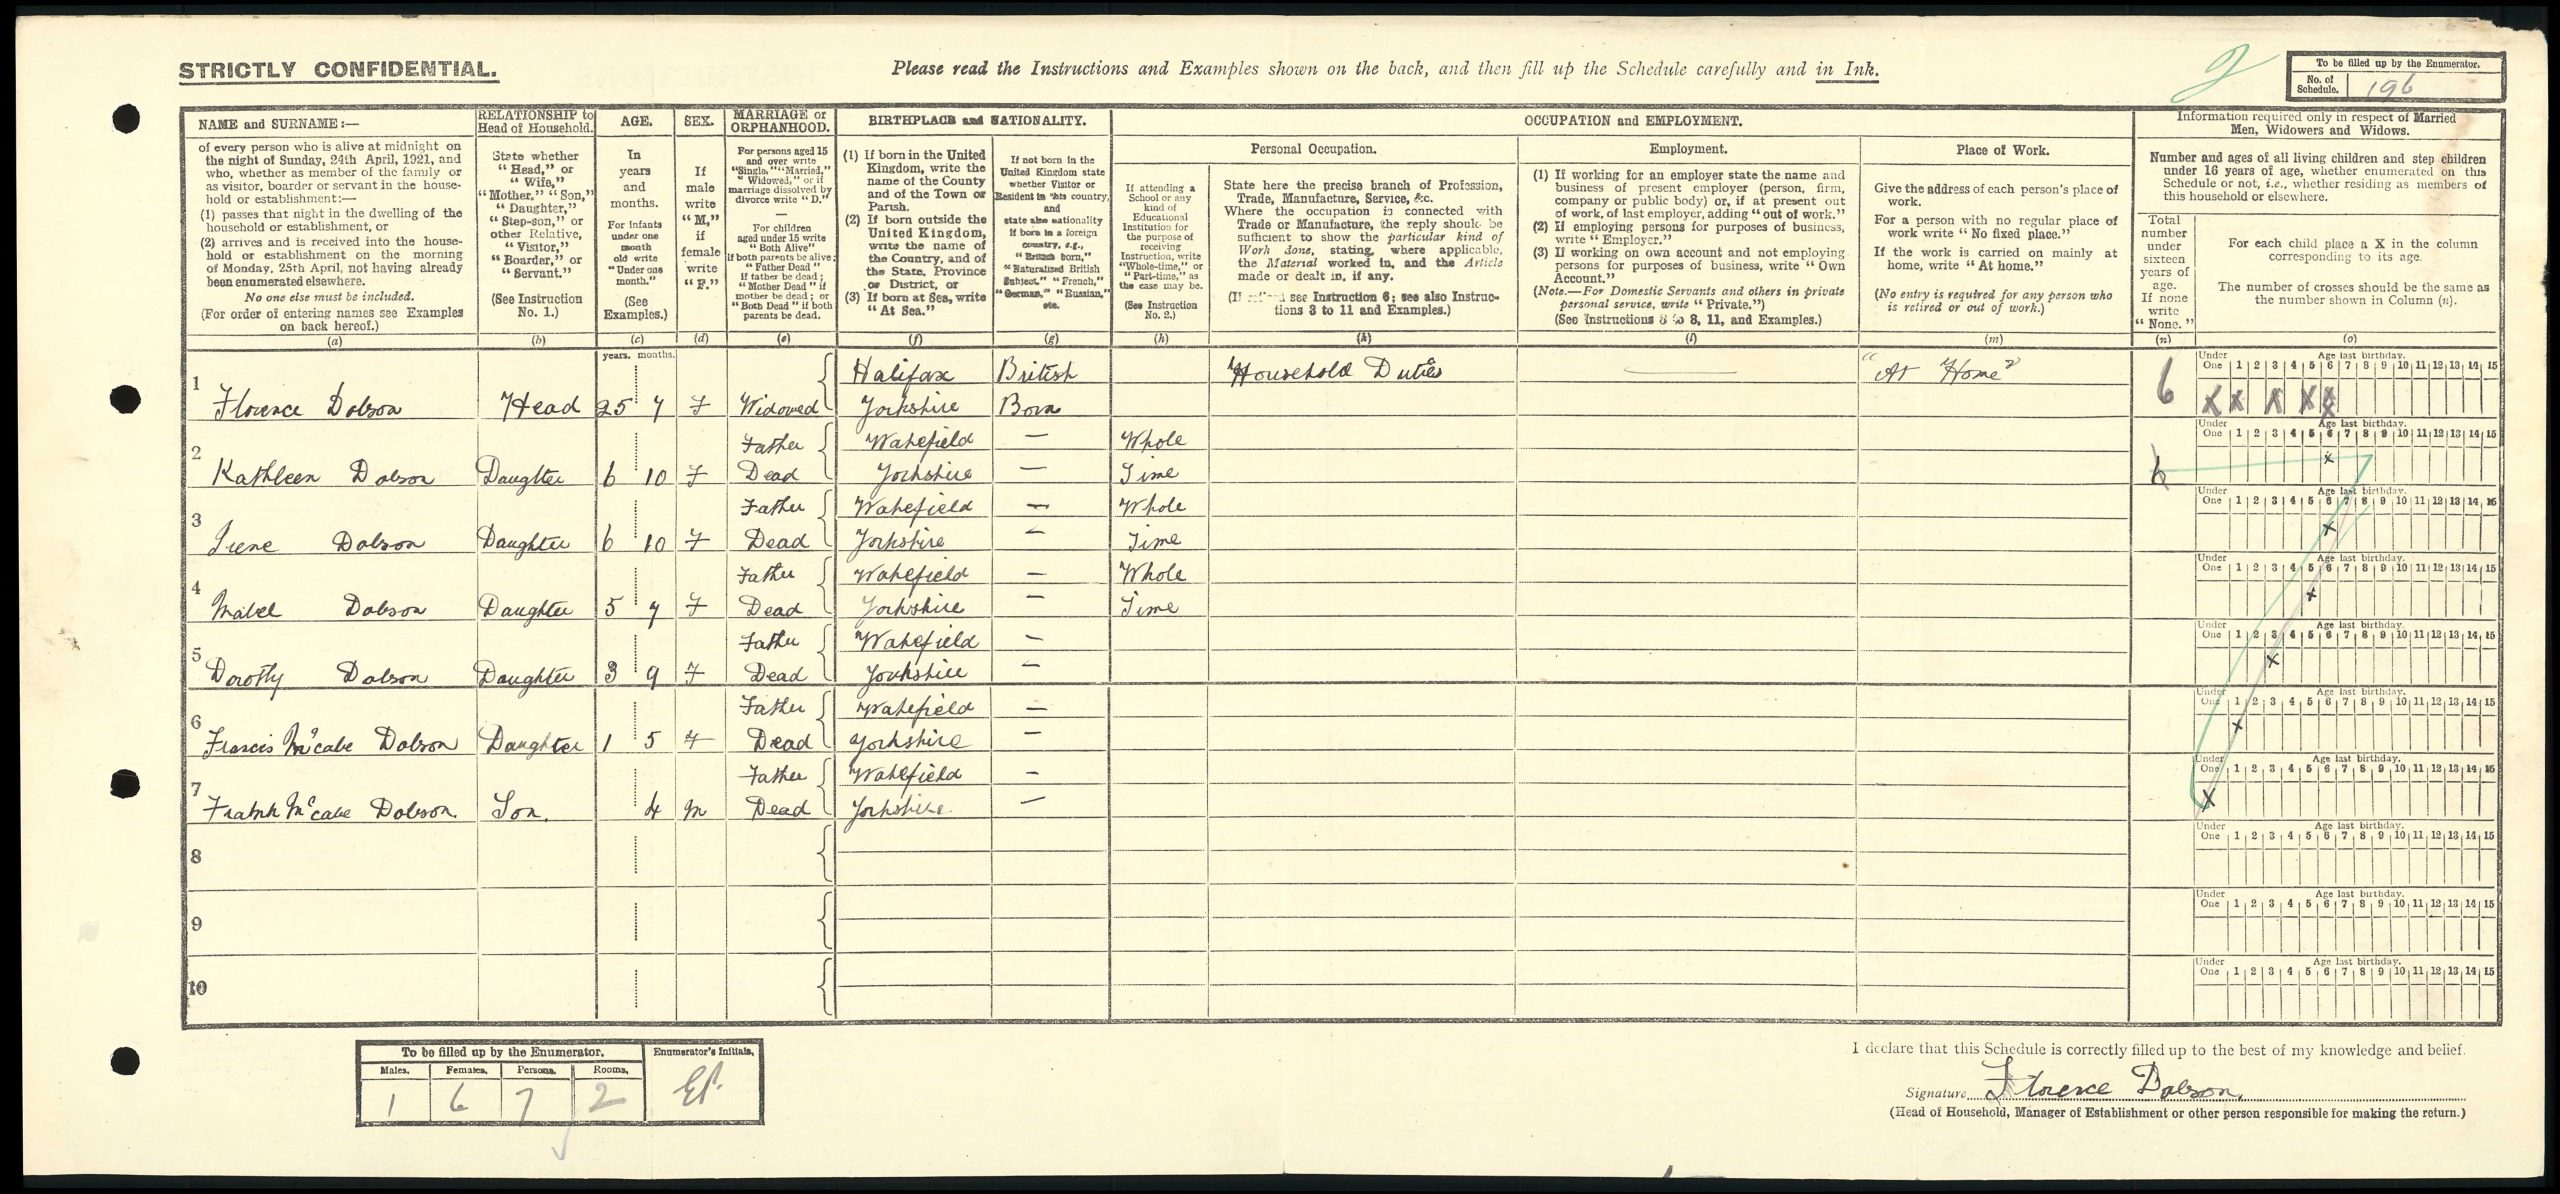 STRICTLY CONFIDENTIAL.
Please read the Instructions and Examples shown on the back, and then fill up the Schedule carefully and in Ink.
To be filled up by the Enumerator.
No. of Schedule. 196
NAME and SURNAME:—
of every person who is alive at midnight on
the night of Sunday, 24th April, 1921, and
who, whether as member of the family or
as visitor, boarder or servant in the house-
hold or establishment:—
(1) passes that night in the dwelling of the
household or establishment, or
(2) arrives and is received into the house-
hold or establishment on the morning
of Monday, 25th April, not having already
been enumerated elsewhere.
No one else must be included.
(For order of entering names see Examples
on back hereof.)
(a)
RELATIONSHIP to
Head of Household.
State whether
"Head," or
"Wife,"
"Mother," "Son,"
"Daughter,"
"Step-son," or
other Relative,
"Visitor,"
"Boarder," or
"Servant."
(See Instruction
No. 1.)
(b)
AGE.
In
years
and
months.
For infants
under one
month
old write
"Under one
month."
(See
Examples.)
(c)
SEX.
If
male
write
"M.,"
if
female
write
"F."
(d)
MARRIAGE or
ORPHANHOOD.
For persons aged 15
and over write
"Single," "Married,"
"Widowed," or if
marriage dissolved by
divorce write "D."
—
For children
aged under 15 write
"Both Alive"
if both parents be alive;
"Father Dead"
if father be dead;
"Mother Dead" if
mother be dead; or
"Both Dead" if both
parents be dead.
(e)
BIRTHPLACE and NATIONALITY.
(1) If born in the United
Kingdom, write the
name of the County
and of the Town or
Parish.
(2) If born outside the
United Kingdom,
write the name of
the Country, and of
the State, Province
or District, or
(3) If born at Sea, write
"At Sea."
(f)
If not born in the
United Kingdom state
whether Visitor or
Resident in this country,
and
state also nationality
if born in a foreign
country, e.g.,
"British born,"
"Naturalised British
Subject," "French,"
"German," "Russian,"
etc.
(g)
OCCUPATION and EMPLOYMENT.
Personal Occupation.
If attending a
School or any
kind of
Educational
Institution for
the purpose of
receiving
Instruction, write
"Whole-time," or
"Part-time," as
the case may be.
(See Instruction
No. 2.)
(h)
State here the precise branch of Profession,
Trade, Manufacture, Service, &c.
Where the occupation is connected with
Trade or Manufacture, the reply should be
sufficient to show the particular kind of
Work done, stating, where applicable,
the Material worked in, and the Article
made or dealt in, if any.
(If retired see Instruction 6; see also Instruc-
tions 3 to 11 and Examples.)
(k)
Employment.
(1) If working for an employer state the name and
business of present employer (person, firm,
company or public body) or, if at present out
of work, of last employer, adding "out of work."
(2) If employing persons for purposes of business,
write "Employer."
(3) If working on own account and not employing
persons for purposes of business, write "Own
Account."
(Note.—For Domestic Servants and others in private
personal service, write "Private.")
(See Instructions 3 to 8, 11, and Examples.)
(l)
Place of Work.
Give the address of each person's place of
work.
For a person with no regular place of
work write "No fixed place."
If the work is carried on mainly at
home, write "At home."
(No entry is required for any person who
is retired or out of work.)
(m)
Information required only in respect of Married
Men, Widowers and Widows.
Number and ages of all living children and step children
under 16 years of age, whether enumerated on this
Schedule or not, i.e., whether residing as members of
this household or elsewhere.
Total
number
under
sixteen
years of
age.
If none
write
"None."
(n)
For each child place a X in the column
corresponding to its age.
The number of crosses should be the same as
the number shown in Column (n).
(o)
years. months.
1 Florence Dobson Head 25 7 F Widowed Halifax Yorkshire British Born Household Duties — "At Home" 6
Under One 1 2 3 4 5 6 7 8 9 10 11 12 13 14 15 Age last birthday.
X X X X X X
2 Kathleen Dobson Daughter 6 10 F Father Dead Wakefield Yorkshire — — Whole Time 6
Under One 1 2 3 4 5 6 7 8 9 10 11 12 13 14 15 Age last birthday.
x
3 Irene Dobson Daughter 6 10 F Father Dead Wakefield Yorkshire — — Whole Time
Under One 1 2 3 4 5 6 7 8 9 10 11 12 13 14 15 Age last birthday.
x
4 Mabel Dobson Daughter 5 7 F Father Dead Wakefield Yorkshire — — Whole Time
Under One 1 2 3 4 5 6 7 8 9 10 11 12 13 14 15 Age last birthday.
x
5 Dorothy Dobson Daughter 3 9 F Father Dead Wakefield Yorkshire — —
Under One 1 2 3 4 5 6 7 8 9 10 11 12 13 14 15 Age last birthday.
x
6 Francis McCabe Dobson Daughter 1 5 F Father Dead Wakefield Yorkshire — —
Under One 1 2 3 4 5 6 7 8 9 10 11 12 13 14 15 Age last birthday.
x
7 Frank McCabe Dobson. Son. 4 M Father Dead Wakefield Yorkshire. — —
Under One 1 2 3 4 5 6 7 8 9 10 11 12 13 14 15 Age last birthday.
x
8
Under One 1 2 3 4 5 6 7 8 9 10 11 12 13 14 15 Age last birthday.
9
Under One 1 2 3 4 5 6 7 8 9 10 11 12 13 14 15 Age last birthday.
10
Under One 1 2 3 4 5 6 7 8 9 10 11 12 13 14 15 Age last birthday.
To be filled up by the Enumerator.
Males. Females. Persons. Rooms.
1 6 7 2
Enumerator's Initials.
I declare that this Schedule is correctly filled up to the best of my knowledge and belief.
Signature Florence Dobson.
(Head of Household, Manager of Establishment or other person responsible for making the return.)